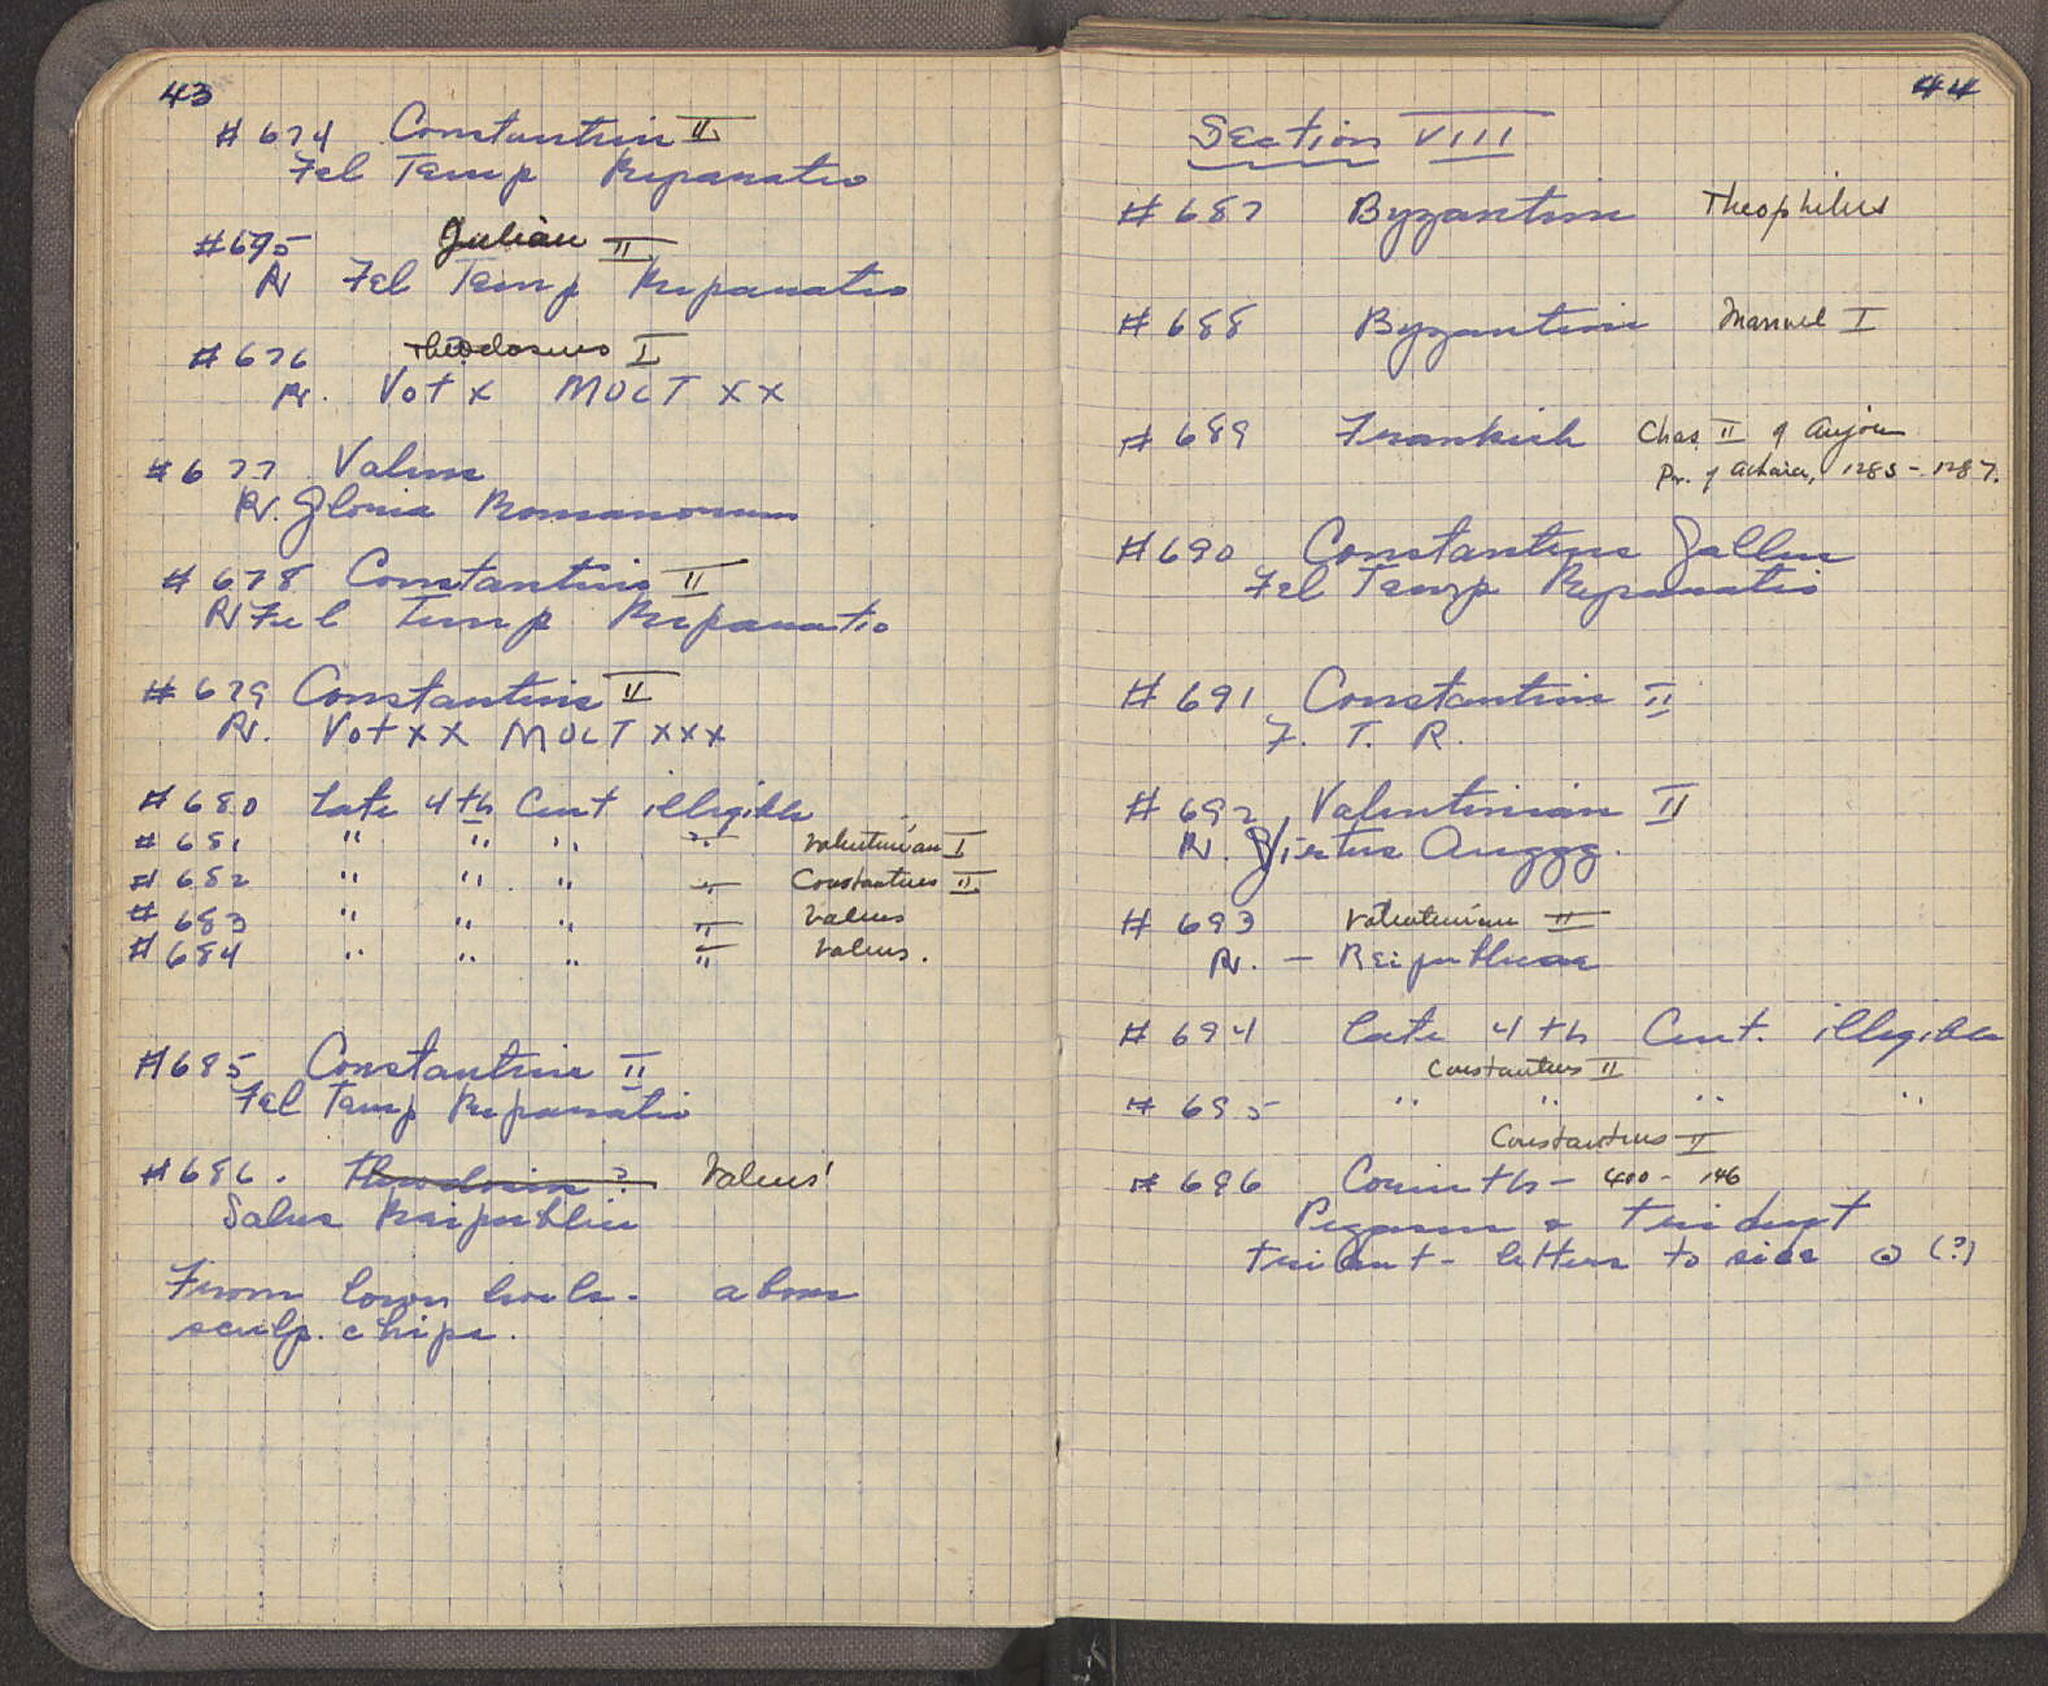 43
# 674 Constantius II
Fel Temp Reparatio
# 675 Julian II
Rv Fel Temp Reparatio
# 676 Theodosius I
Rv. Vot X MULT XX
# 677 Valens
Rv. Gloria Romanorum
# 678 Constantius II
Rv Fel Temp Reparatio
# 679 Constantius II
Rv. Vot XX MULT XXX
# 680 Late 4th Cent illegible
# 681 " " " " Valentinian I
# 682 " " " " Constantius II
# 683 " " " " Valens
# 684 " " " " Valens.
# 685 Constantius II
Fel Temp Reparatio
# 686. Theodosius ? Valens!
Salus Reipublic
From lower levels. above
sculp. chips.
44
Section VIII
# 687 Byzantine Theophilus
# 688 Byzantine Manuel I
# 689 Frankish Chas II of Anjou
Pr. of Achaia, 1285-1287.
# 690 Constantius Gallus
Fel Temp Reparatio
# 691 Constantius II
F. T. R.
# 692 Valentinian II
Rv. Virtus Auggg.
# 693 Valentinian II
Rv. - Reipublicae
# 694 Late 4th Cent. illegible
Constantius II
# 695 " " " "
Constantius II
# 696 Corinth - 400 - 146
Pegasus & trident
trident - letters to side (?)